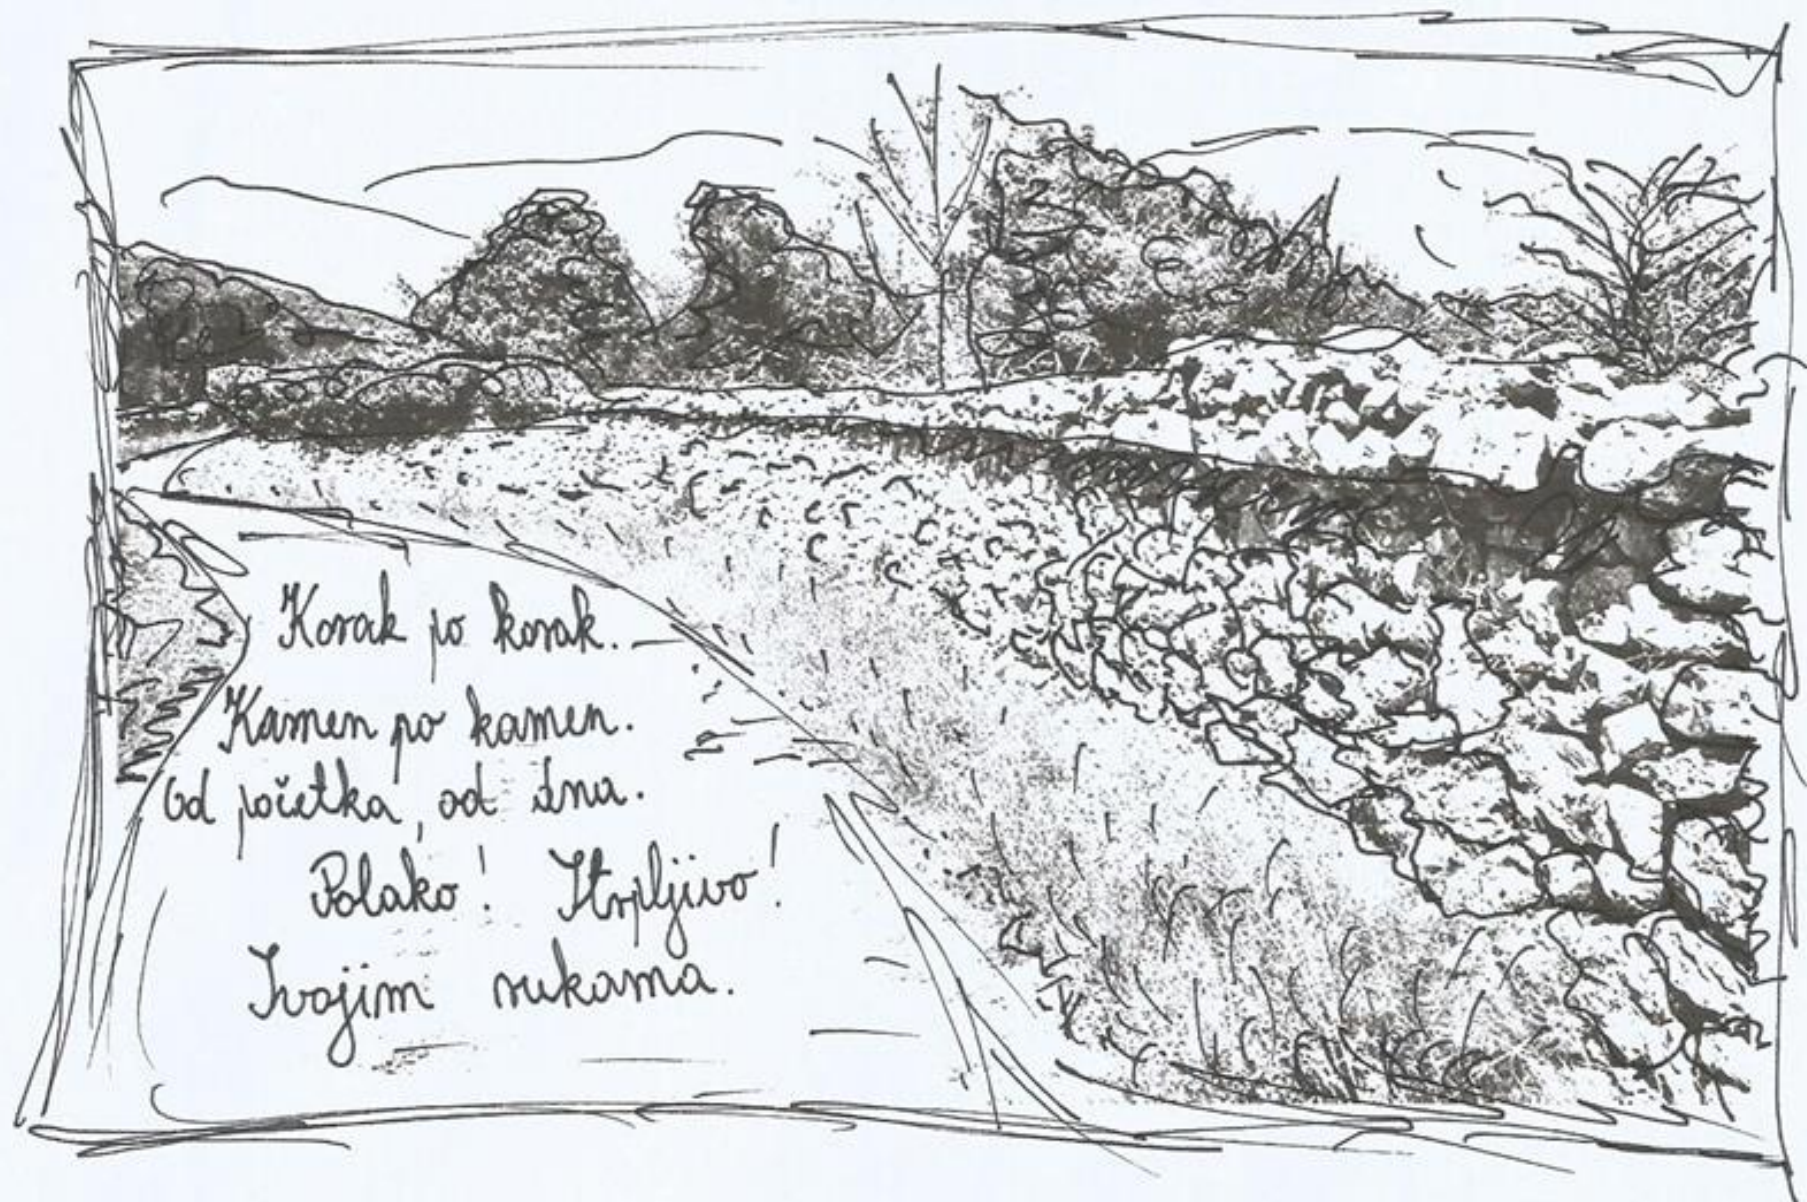 Korak po korak.
Kamen po kamen.
Od početka, od dna.
Polako! Strpljivo!
Tvojim rukama.